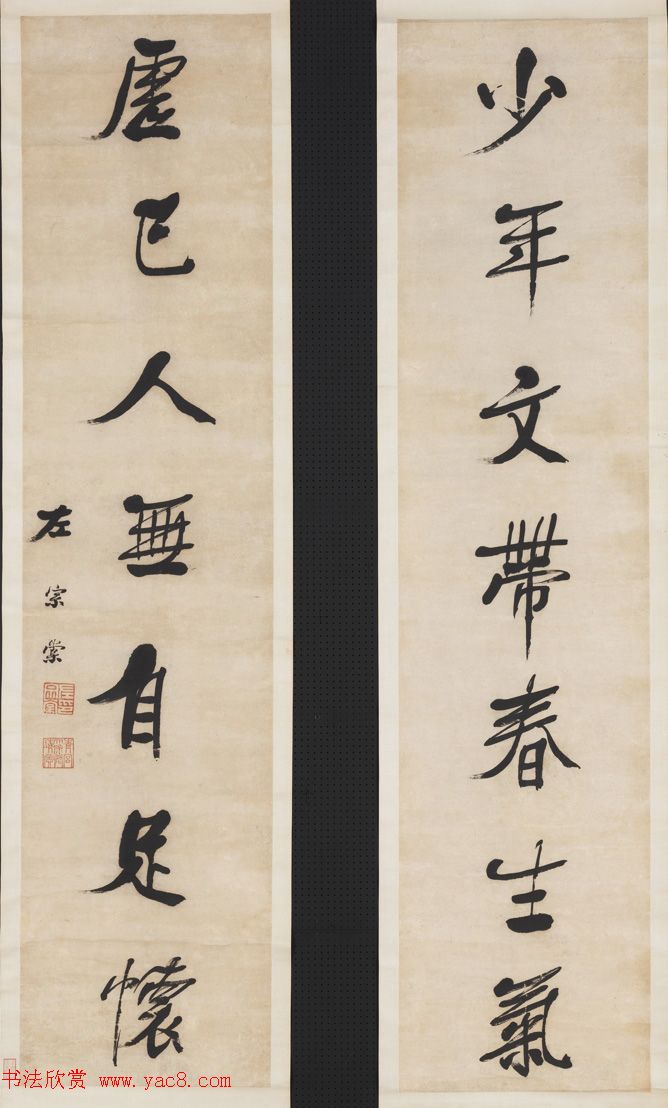 少年文帶春生氣
虛已人無自足懷
左宗棠
书法欣赏 www.yac8.com